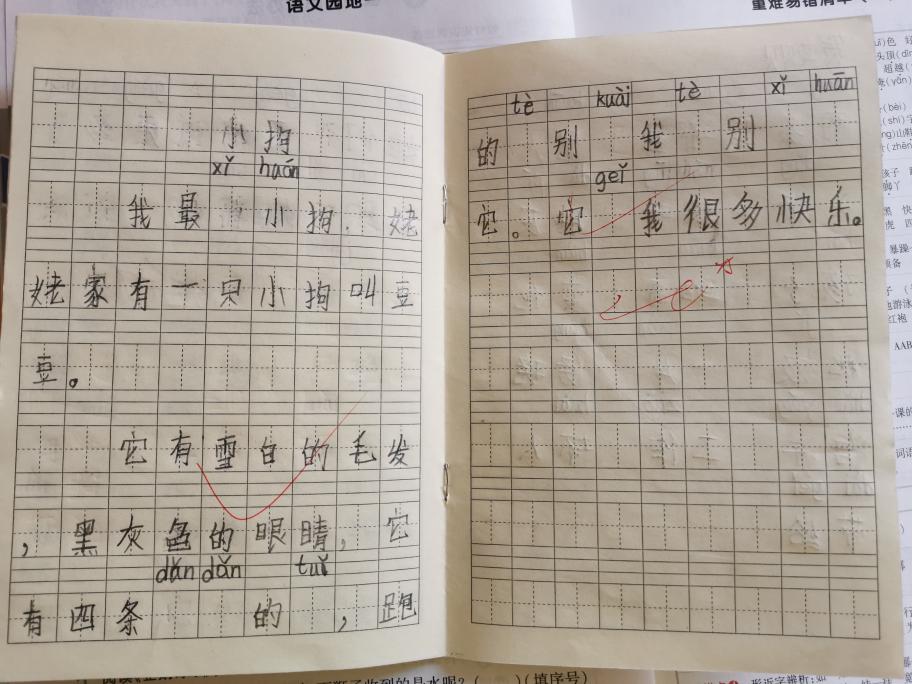 语文园地
重难易错清单
小狗
xǐ huān
我最 小狗.姥
姥家有一只小狗叫豆
豆。
它有雪白的毛发
,黑灰色的眼睛,它
dǎn dǎn tuǐ
有四条 的 ,跑
tè kuài tè xǐ huān
的 别 我 别
gěi
它。它 我很多快乐。
收到的是水呢?( )(填序号)
形近字辨析:如